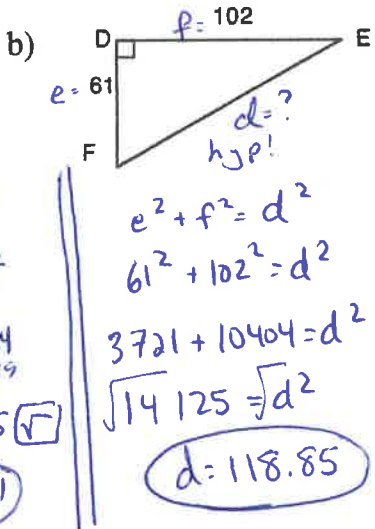 b)
D f= 102 E
e= 61
F
d=?
hyp!
e² + f² = d²
61² + 102² = d²
3721 + 10404 = d²
√14125 = √d²
d= 118.85